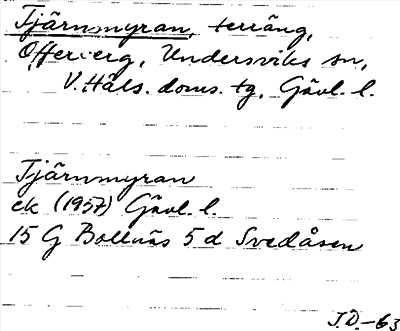 Tjärnmyran, terräng,
Offerberg, Undersviks sn,
V. Häls. doms. tg, Gävl. l.
Tjärnmyran
ek (1957) Gävl. l.
15 G Bollnäs 5 d Svedåsen
J.D.-63